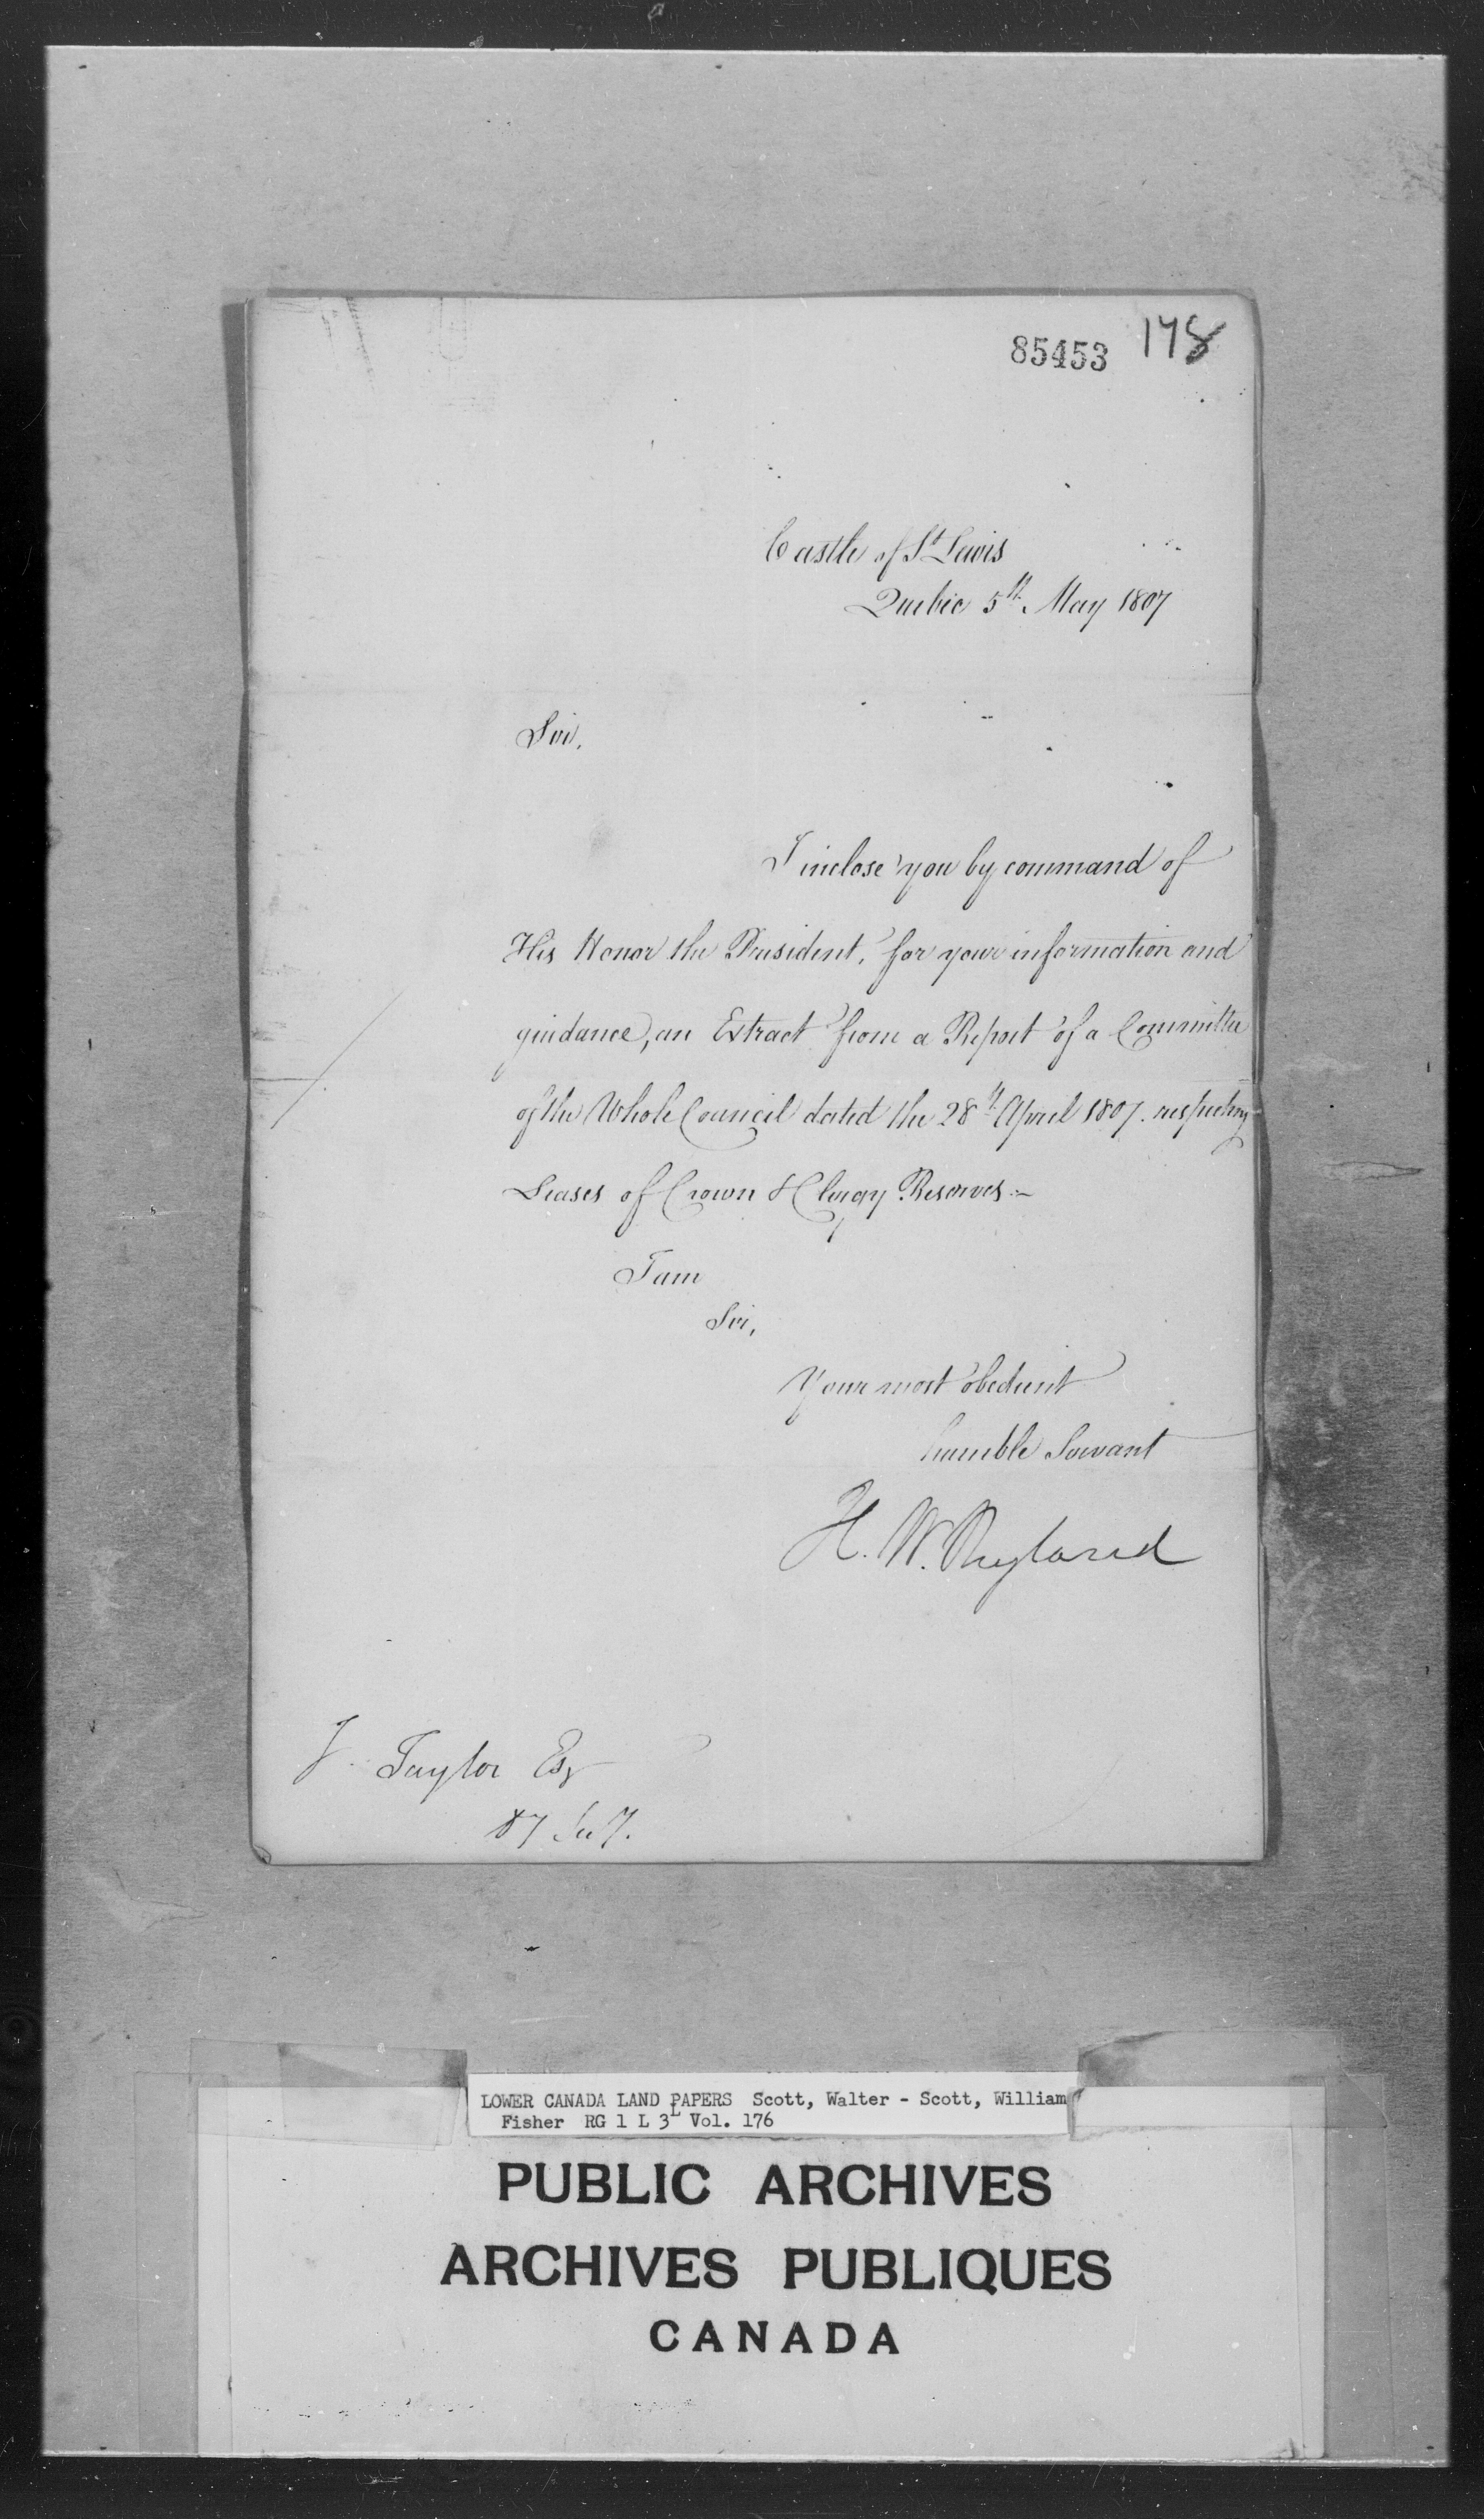 85453 178
Castle of St. Lewis
Quebec 5th. May 1807
Sir,
I inclose you by command of
His Honor the President, for your information and
guidance, an Extract from a Report of a Committee
of the Whole Council dated the 28th April 1807. respecting
Leases of Crown & Clergy Reserves.-
I am
Sir,
Your most obedient
humble Servant
H. W. Ryland
J. Taylor Esq
LOWER CANADA LAND PAPERS Scott, Walter - Scott, William
Fisher RG 1 L 3L Vol. 176
PUBLIC ARCHIVES
ARCHIVES PUBLIQUES
CANADA